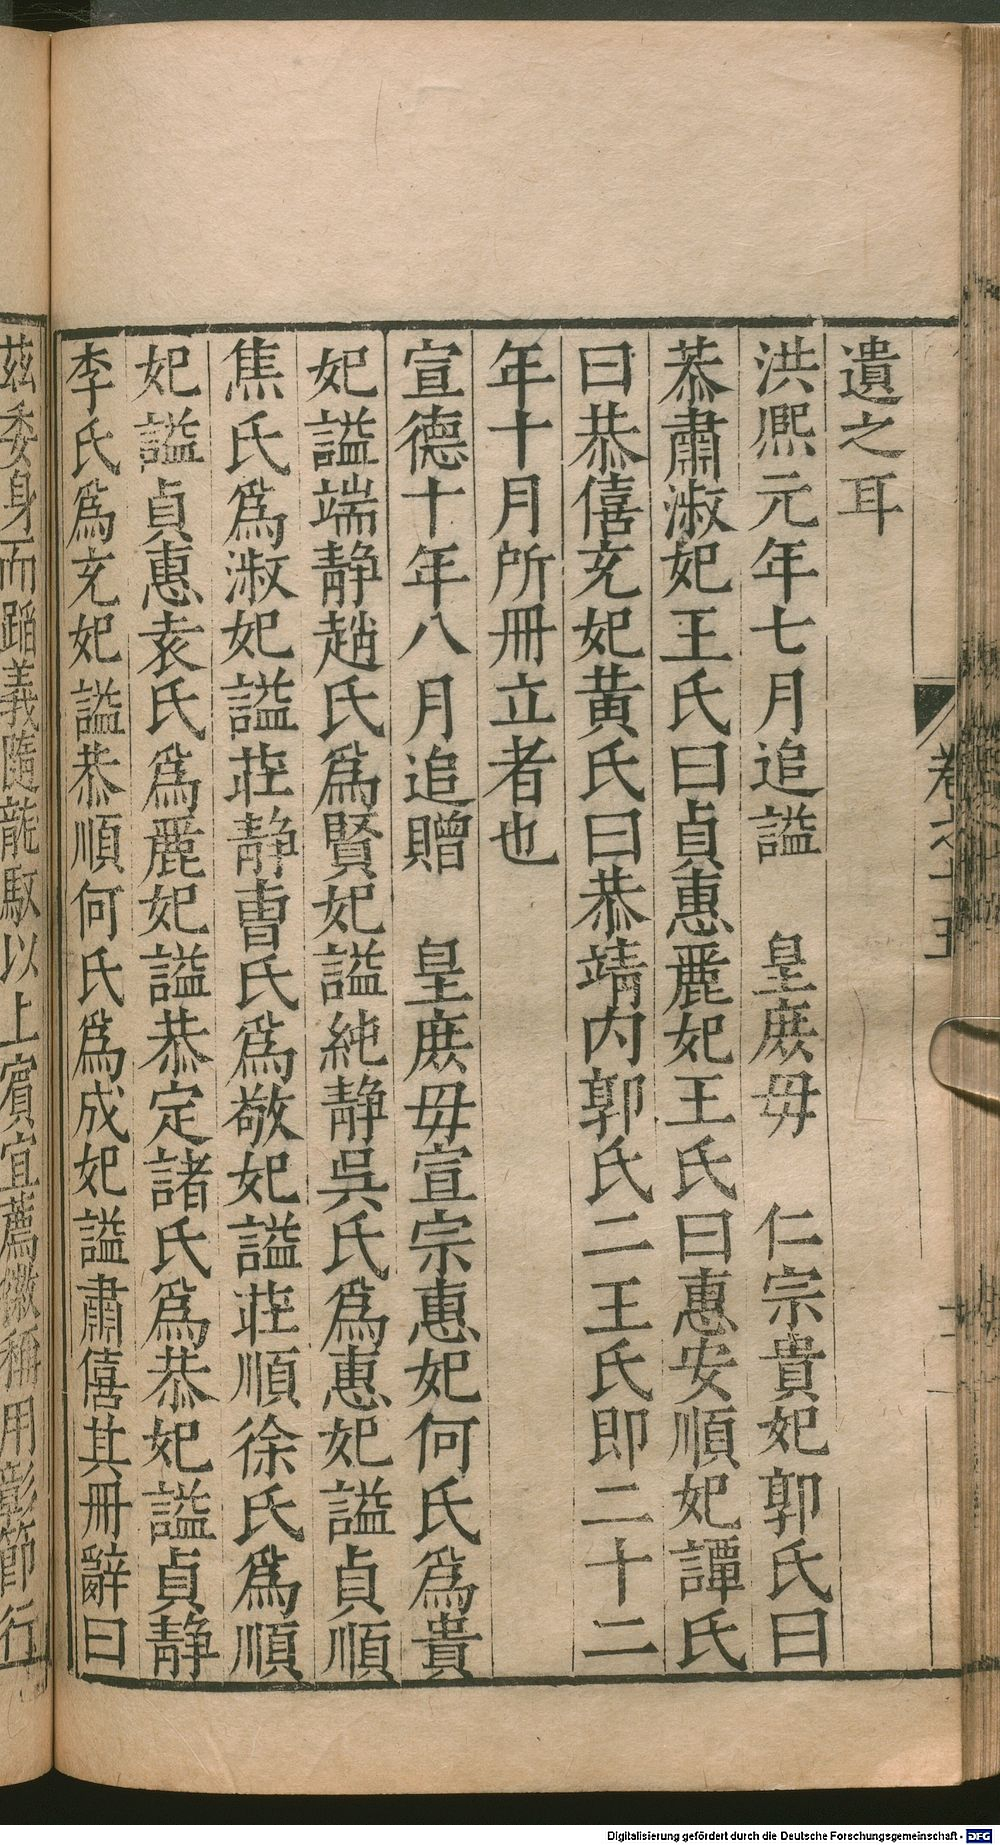 遺之耳
洪熈元年七月追謚　皇庶毋　仁宗貴妃郭氏曰
恭肅淑妃王氏曰貞惠麗妃王氏曰惠安順妃譚氏
曰恭僖充妃黃氏曰恭靖内郭氏二王氏即二十二
年十月所冊立者也
宣德十年八月追贈　皇庶毋宣宗惠妃何氏爲貴
妃謚端静趙氏爲賢妃謚純静吳氏爲惠妃謚貞順
焦氏爲淑妃謚莊静曹氏爲敬妃謚莊順徐氏爲順
妃謚貞惠袁氏爲麗妃謚恭定諸氏爲恭妃謚貞静
李氏爲充妃謚恭順何氏爲成妃謚肅僖其冊辭曰
茲委身而蹈義隨龍馭以上賓宜薦徽稱用彰節行
Digitalisierung gefördert durch die Deutsche Forschungsgemeinschaft - DFG